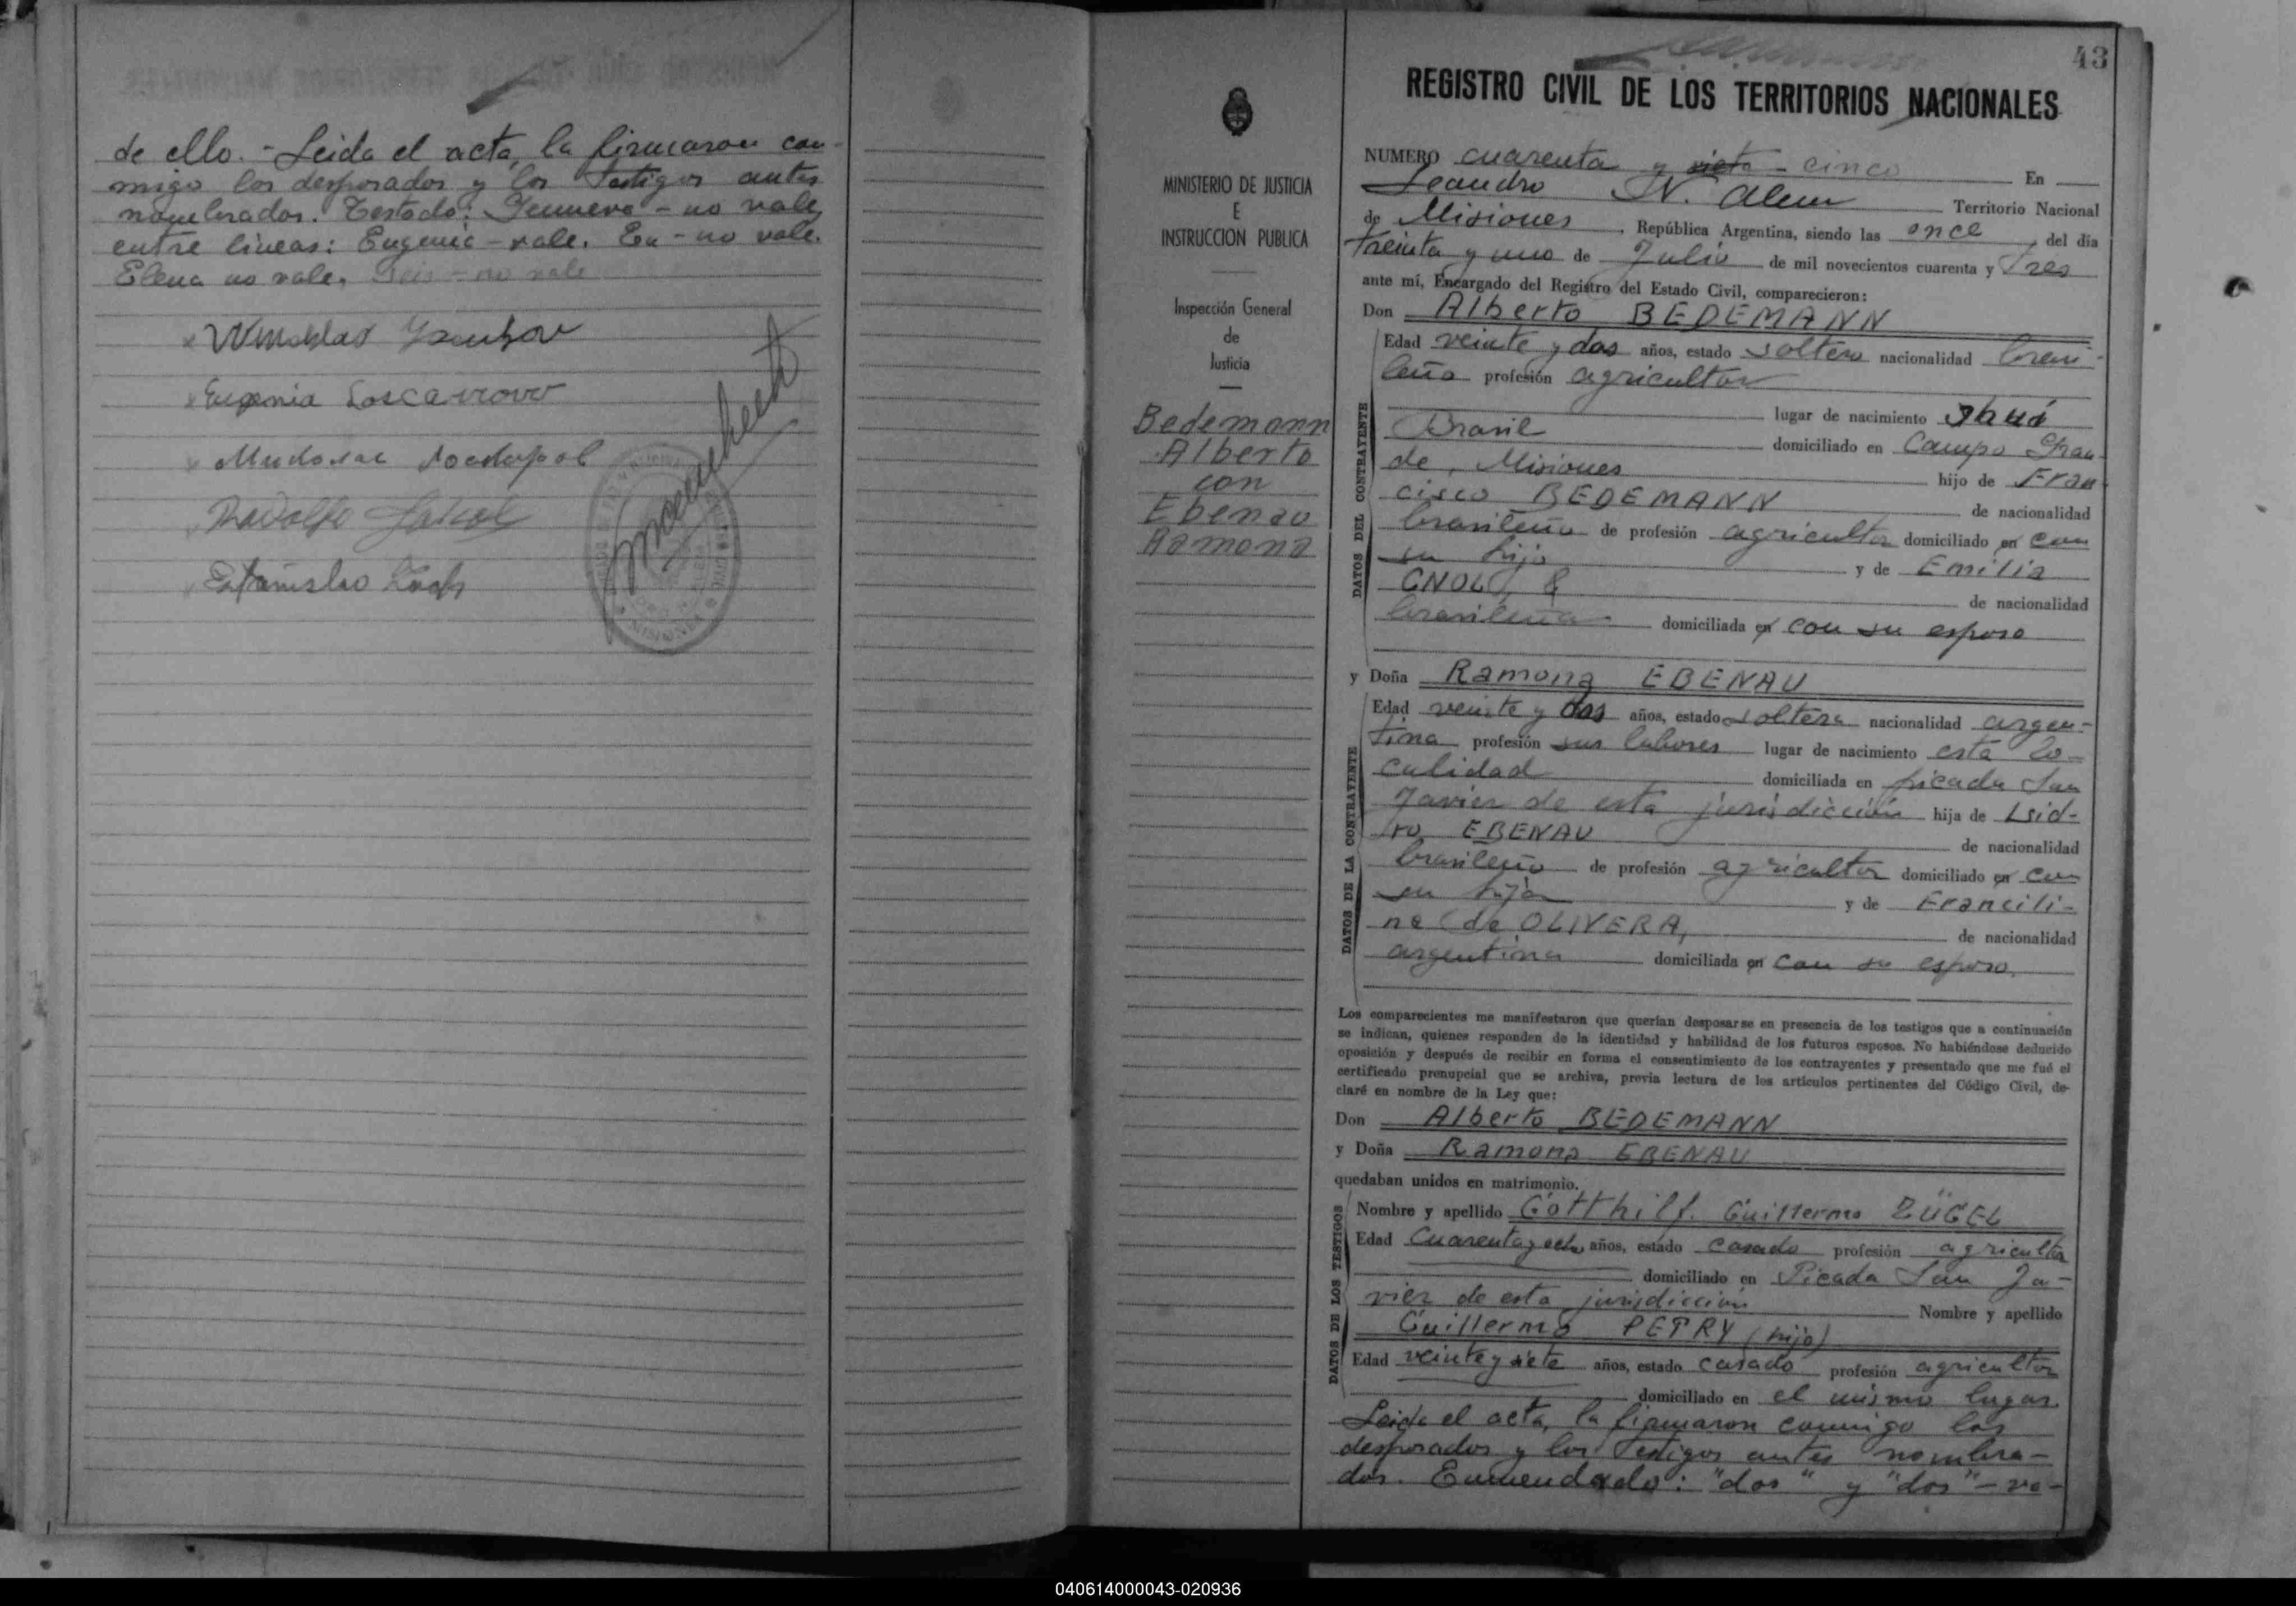 de ello. - Leida el acta, la firmaron con-
migo los desposados y los testigos antes
nombrados. Testado: - no vale,
entre lineas: Eugenia - vale. En - no vale.
Elena no vale. Seis - no vale
Eugenia
Rodolfo
Estanislao
MISIONES
MINISTERIO DE JUSTICIA
E
INSTRUCCION PUBLICA
Inspección General
de
Justicia
Bedemann
Alberto
con
Ebenau
Ramona
43
REGISTRO CIVIL DE LOS TERRITORIOS NACIONALES
NUMERO cuarenta y siete - cinco En
Leandro N. Alem Territorio Nacional
de Misiones, República Argentina, siendo las once del día
treinta y uno de Julio de mil novecientos cuarenta y tres
ante mí, Encargado del Registro del Estado Civil, comparecieron:
Don Alberto BEDEMANN
DATOS DEL CONTRAYENTE
Edad veinte y dos años, estado soltero nacionalidad brasi-
leña profesión agricultor
lugar de nacimiento Ihuí
Brasil domiciliado en Campo Gran-
de, Misiones hijo de Fran-
cisco BEDEMANN de nacionalidad
brasileña de profesión agricultor domiciliado en con
su hijo y de Emilia
de nacionalidad
brasileña domiciliada en con su esposo
y Doña Ramona EBENAU
DATOS DE LA CONTRAYENTE
Edad veinte y dos años, estado soltera nacionalidad argen-
tina profesión sus labores lugar de nacimiento esta lo-
calidad domiciliada en picada San
Javier de esta jurisdicción hija de Isid-
ro EBENAU de nacionalidad
brasileño de profesión agricultor domiciliado en con
su hija y de Francili-
na de OLIVERA, de nacionalidad
argentina domiciliada en con su esposo.
Los comparecientes me manifestaron que querían desposarse en presencia de los testigos que a continuación
se indican, quienes responden de la identidad y habilidad de los futuros esposos. No habiéndose deducido
oposición y después de recibir en forma el consentimiento de los contrayentes y presentado que me fué el
certificado prenupcial que se archiva, previa lectura de los artículos pertinentes del Código Civil, de-
claré en nombre de la Ley que:
Don Alberto BEDEMANN
y Doña Ramona EBENAU
quedaban unidos en matrimonio.
DATOS DE LOS TESTIGOS
Nombre y apellido Gotthilf. Guillermo ZÜGEL
Edad Cuarenta y ocho años, estado casado profesión agricultor
domiciliado en Picada San Ja-
vier de esta jurisdicción Nombre y apellido
Guillermo PETRY (hijo)
Edad veinte y siete años, estado casado profesión agricultor
domiciliado en el mismo lugar.
Leida el acta, la firmaron conmigo los
desposados y los testigos antes nombra-
dos. Enmendado: "dos" y "dos" - va-
040614000043-020936